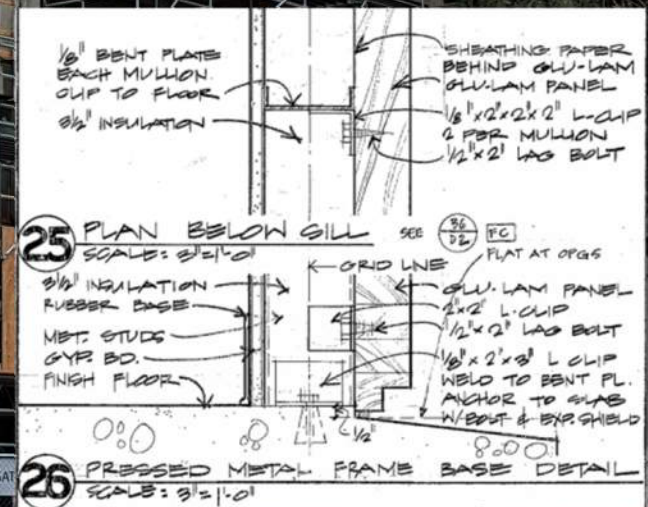 1/8" BENT PLATE
EACH MULLION
CLIP TO FLOOR
3 1/2" INSULATION
SHEATHING PAPER
BEHIND GLU-LAM
GLU-LAM PANEL
1/8" x 2" x 2" x 2" L-CLIP
2 PER MULLION
1/2" x 2" LAG BOLT
25 PLAN BELOW SILL SEE 36 D2 FC
SCALE: 3"=1'-0"
FLAT AT OPGS
GRID LINE
3 1/2" INSULATION
RUBBER BASE
MET. STUDS
GYP. BD.
FINISH FLOOR
GLU-LAM PANEL
2"x2" L-CLIP
1/2" x 2" LAG BOLT
1/8" x 2" x 3" L CLIP
WELD TO BENT PL.
ANCHOR TO SLAB
W/BOLT & EXP. SHIELD
1/2"
26 PRESSED METAL FRAME BASE DETAIL
SCALE: 3"=1'-0"